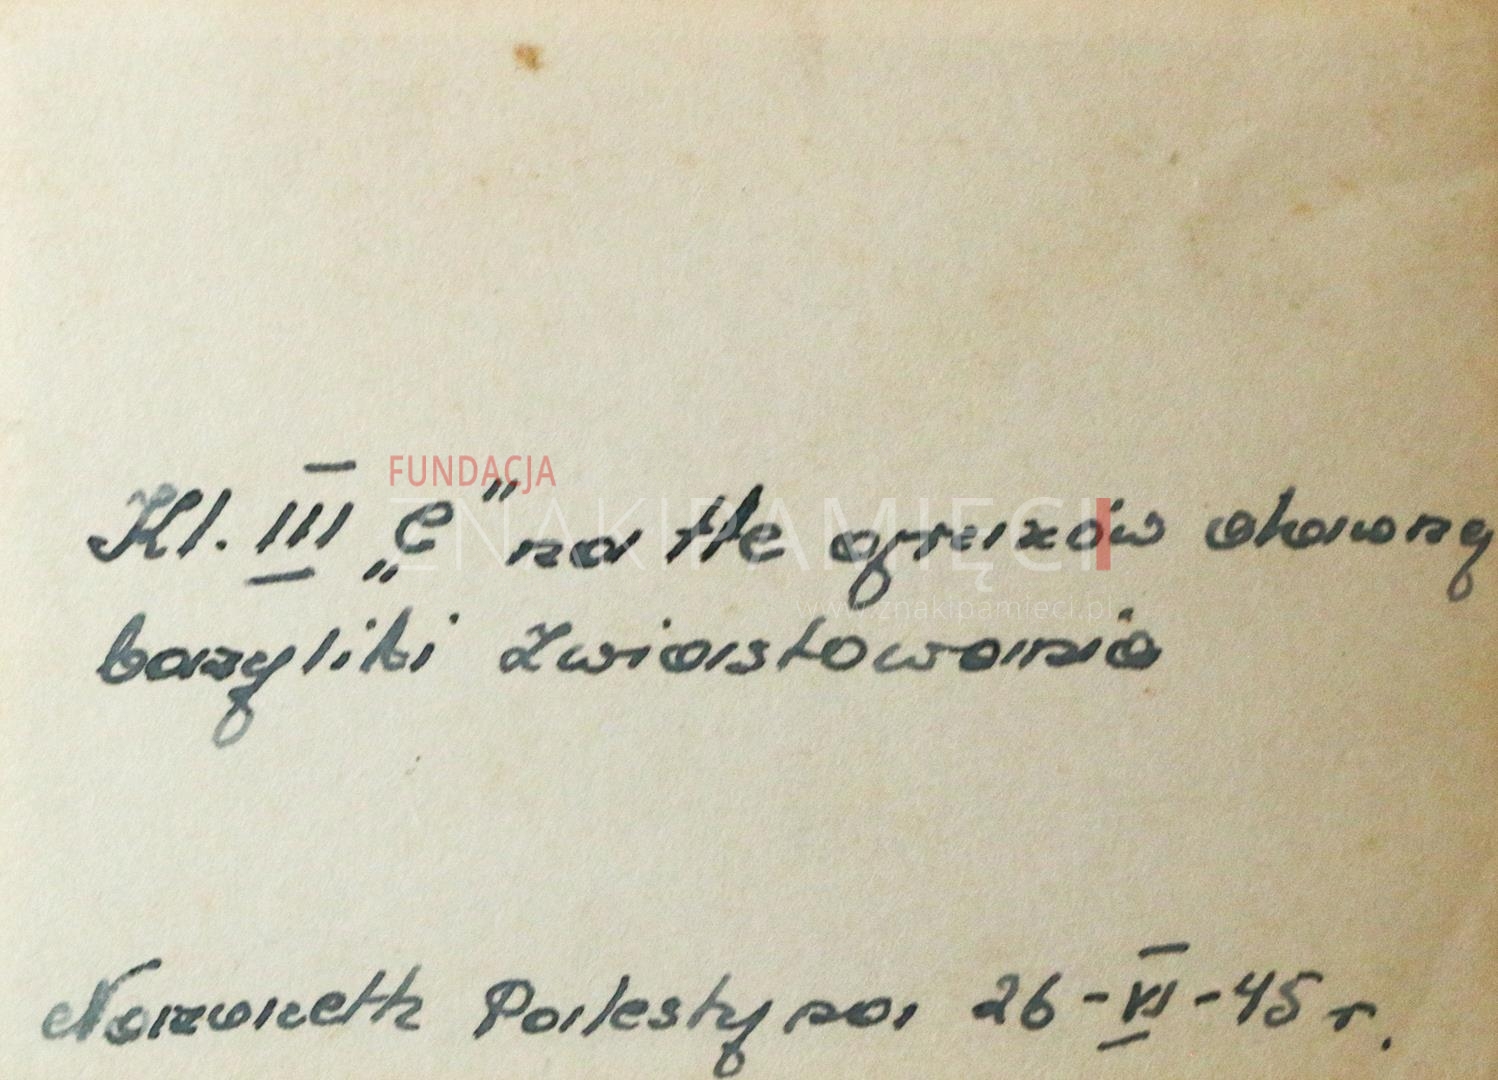 FUNDACJA
ZNAKI PAMIĘCI
www.znakipamieci.pl
Kl. III „C" na tle gruzów
bazyliki Zwiastowania
Nazareth Palestyna 26-VI-45 r.